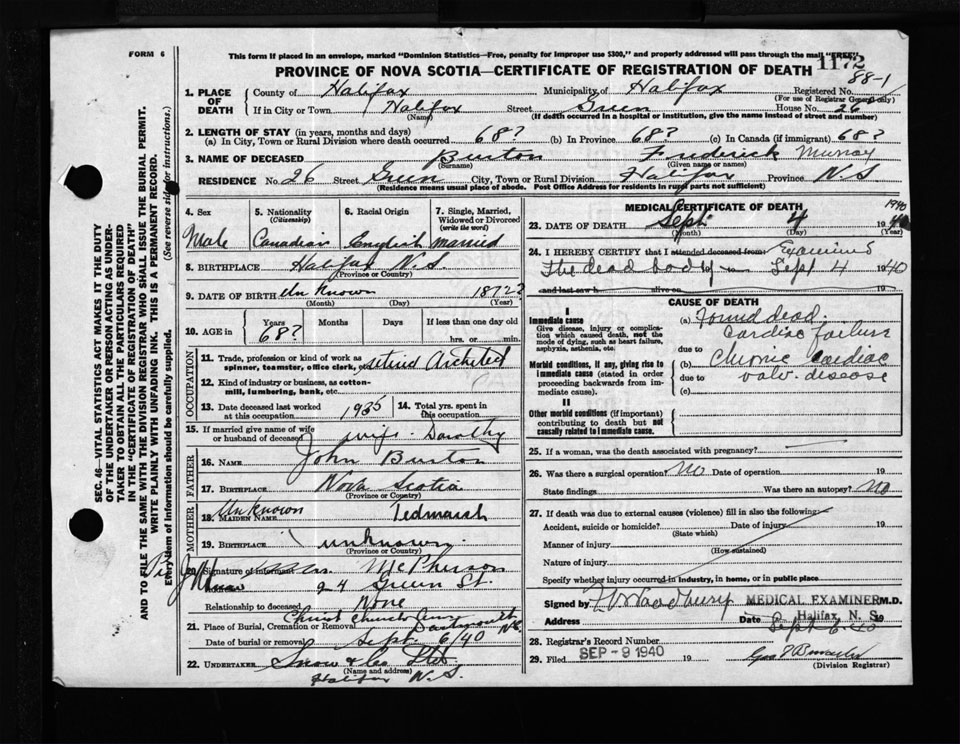 FORM 6
This form if placed in an envelope, marked "Dominion Statistics—Free, penalty for improper use $300," and properly addressed will pass through the mail "FREE"
1172
PROVINCE OF NOVA SCOTIA—CERTIFICATE OF REGISTRATION OF DEATH
88-1
1. PLACE OF DEATH
County of Halifax Municipality of Halifax Registered No.
(For use of Registrar General only)
If in City or Town Halifax Street Green House No. 26
(Name) (If death occurred in a hospital or institution, give the name instead of street and number)
2. LENGTH OF STAY (in years, months and days)
(a) In City, Town or Rural Division where death occurred 68? (b) In Province 68? (c) In Canada (if immigrant) 68?
3. NAME OF DECEASED Burton Frederick Murray
(Surname) (Given name or names)
RESIDENCE No. 26 Street Green City, Town or Rural Division Halifax Province N.S.
(Residence means usual place of abode. Post Office Address for residents in rural parts not sufficient)
4. Sex 5. Nationality (Citizenship) 6. Racial Origin 7. Single, Married, Widowed or Divorced (write the word)
Male Canadian English married
8. BIRTHPLACE Halifax N.S.
(Province or Country)
9. DATE OF BIRTH Unknown 1872?
(Month) (Day) (Year)
10. AGE in Years Months Days If less than one day old
68? hrs. or min.
OCCUPATION
11. Trade, profession or kind of work as spinner, teamster, office clerk, etc. retired Architect
12. Kind of industry or business, as cotton-mill, lumbering, bank, etc.
13. Date deceased last worked at this occupation 1935 14. Total yrs. spent in this occupation
15. If married give name of wife or husband of deceased wife. Dorothy
FATHER
16. NAME John Burton
17. BIRTHPLACE Nova Scotia
(Province or Country)
MOTHER
18. MAIDEN NAME Unknown Tedmarsh
19. BIRTHPLACE unknown.
(Province or Country)
20. Signature of informant McPherson
24 Green St.
Relationship to deceased None
21. Place of Burial, Cremation or Removal Christ Church Cem Dartmouth N.S.
Date of burial or removal Sept. 6/40
22. UNDERTAKER Snow & Co Ltd
(Name and address)
Halifax N.S.
MEDICAL CERTIFICATE OF DEATH
23. DATE OF DEATH Sept 4 1940
(Month) (Day) (Year)
24. I HEREBY CERTIFY that I attended deceased from Examined
The dead body on Sept 4 1940
and last saw h alive on 19
CAUSE OF DEATH
I
Immediate cause
Give disease, injury or complication which caused death, not the mode of dying, such as heart failure, asphyxia, asthenia, etc.
(a) Found dead
cardiac failure
due to
Morbid conditions, if any, giving rise to immediate cause (stated in order proceeding backwards from immediate cause).
(b) Chronic cardiac
due to valv. disease
(c)
II
Other morbid conditions (if important) contributing to death but not causally related to immediate cause.
25. If a woman, was the death associated with pregnancy?
26. Was there a surgical operation? No Date of operation 19
State findings Was there an autopsy? No
27. If death was due to external causes (violence) fill in also the following:
Accident, suicide or homicide? Date of injury 19
(State which)
Manner of injury
(How sustained)
Nature of injury
Specify whether injury occurred in industry, in home, or in public place
Signed by Woodbury MEDICAL EXAMINER M.D.
Halifax, N. S.
Address Date Sept 6. 40
28. Registrar's Record Number
29. Filed SEP - 9 1940 19
(Division Registrar)
SEC. 46—VITAL STATISTICS ACT MAKES IT THE DUTY
OF THE UNDERTAKER OR PERSON ACTING AS UNDER-
TAKER TO OBTAIN ALL THE PARTICULARS REQUIRED
IN THE "CERTIFICATE OF REGISTRATION OF DEATH"
AND TO FILE THE SAME WITH THE DIVISION REGISTRAR WHO SHALL ISSUE THE BURIAL PERMIT.
WRITE PLAINLY WITH UNFADING INK. THIS IS A PERMANENT RECORD.
Every item of information should be carefully supplied. (See reverse side for instructions.)